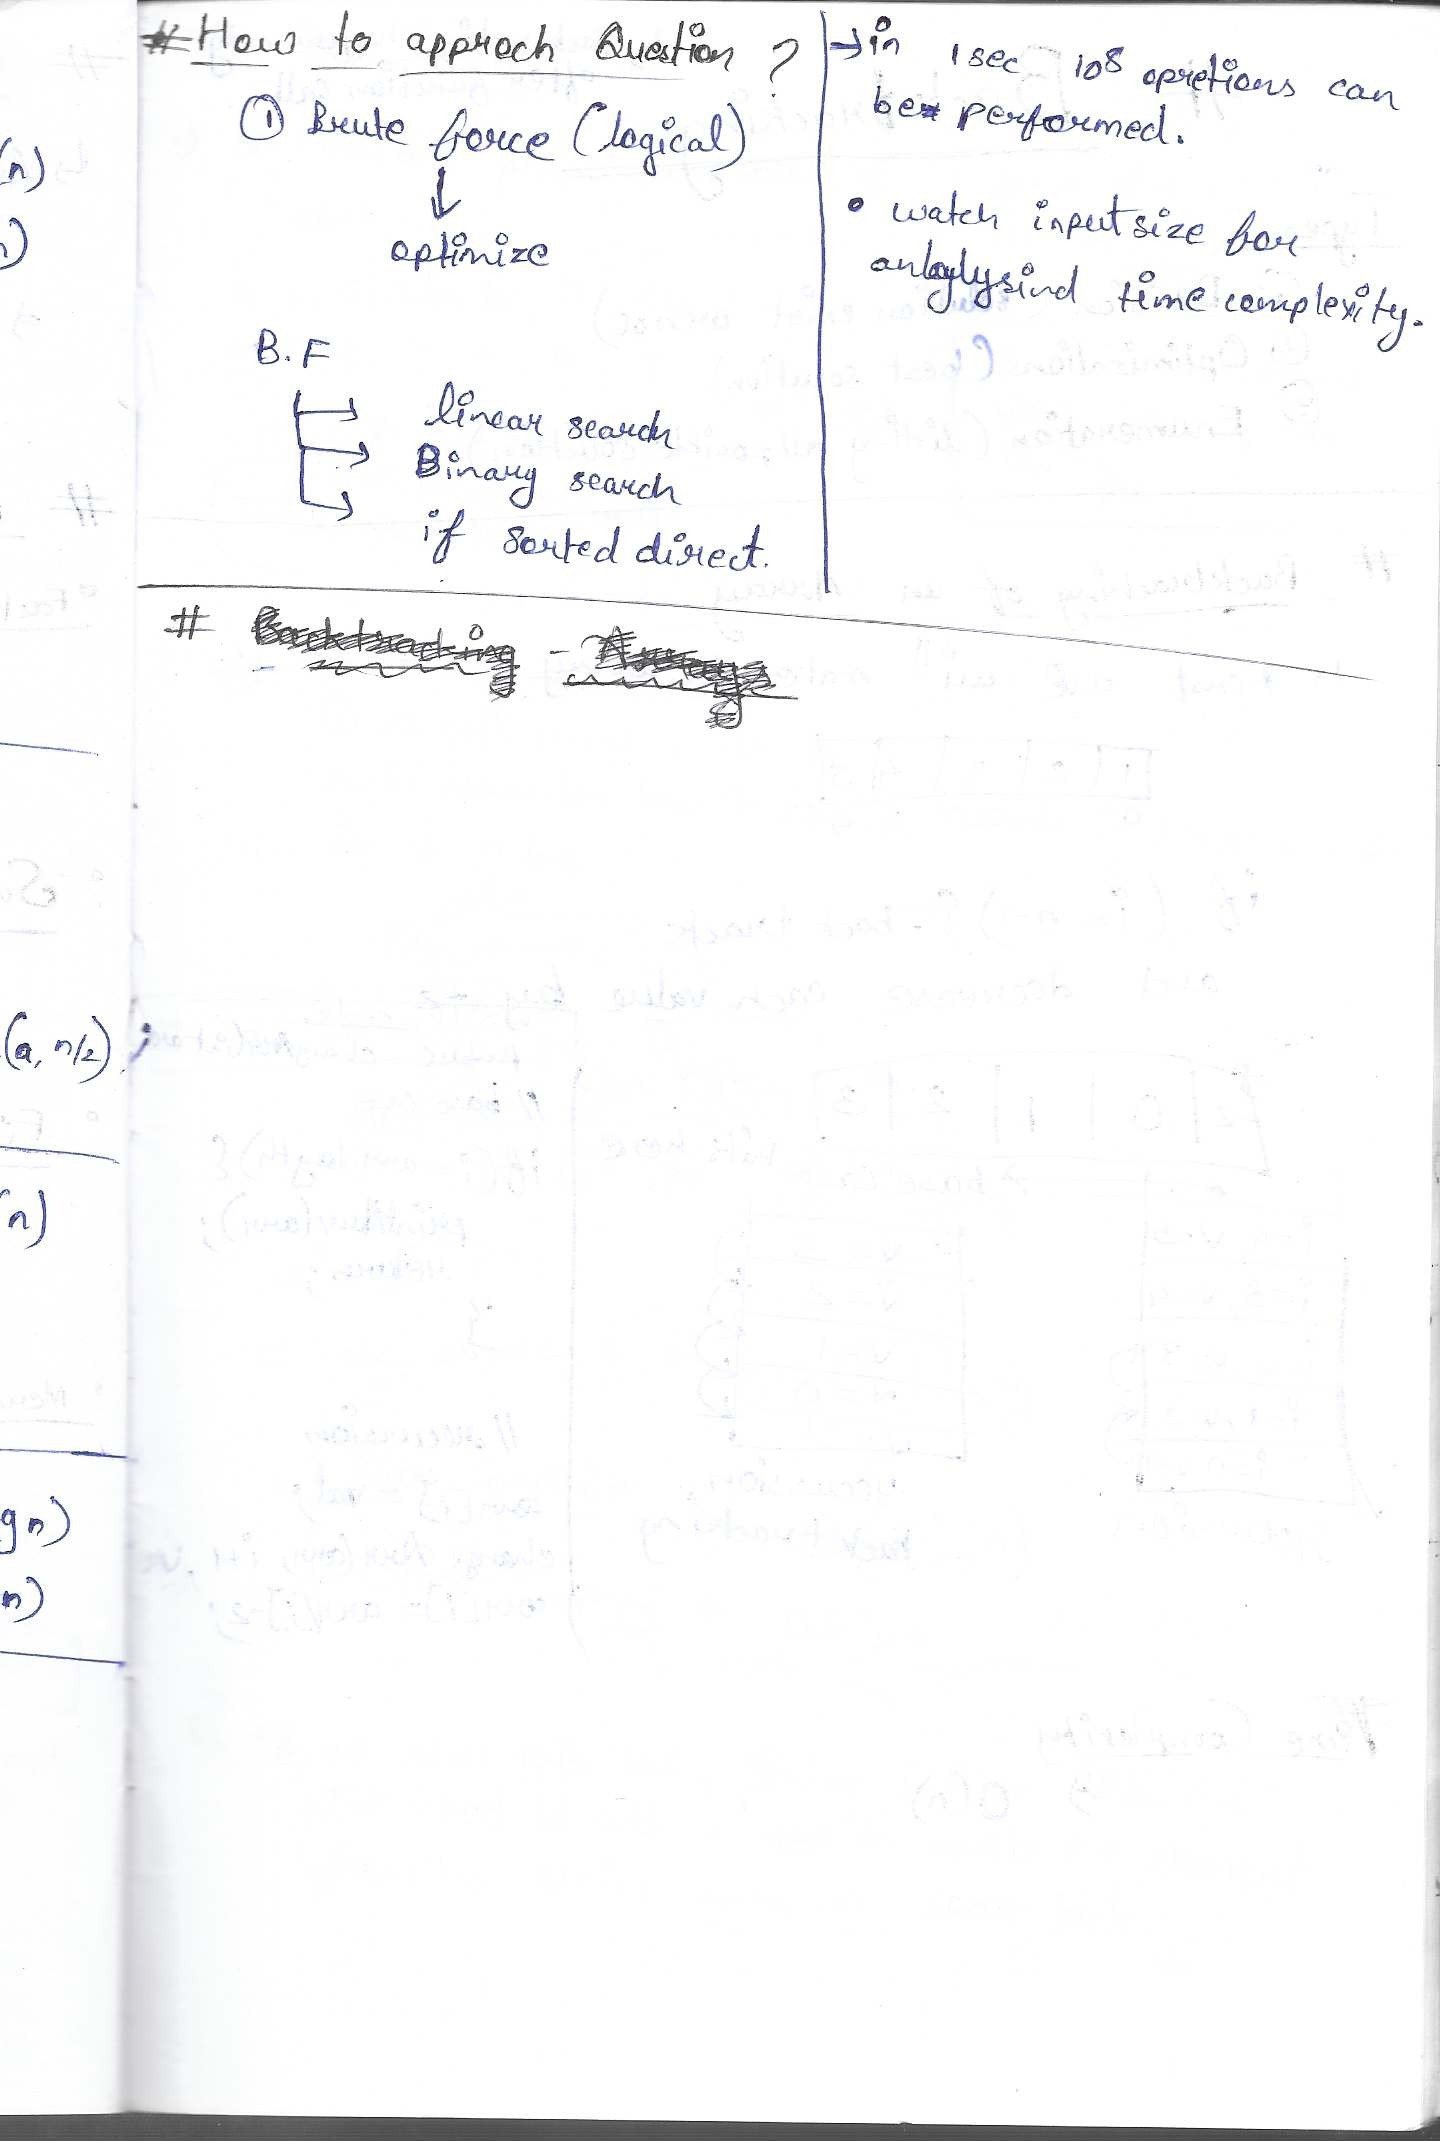 # How to approch Question ?
① Brute force (logical)
↓
optimize
B.F
→ linear search
→ Binary search
→ if sorted direct.
→ in 1 sec 10⁸ opretions can
be performed.
• watch input size for
time complexity.
# Backtracking - Arrays
(n)
)
(a, n/2);
n)
gn)
n)